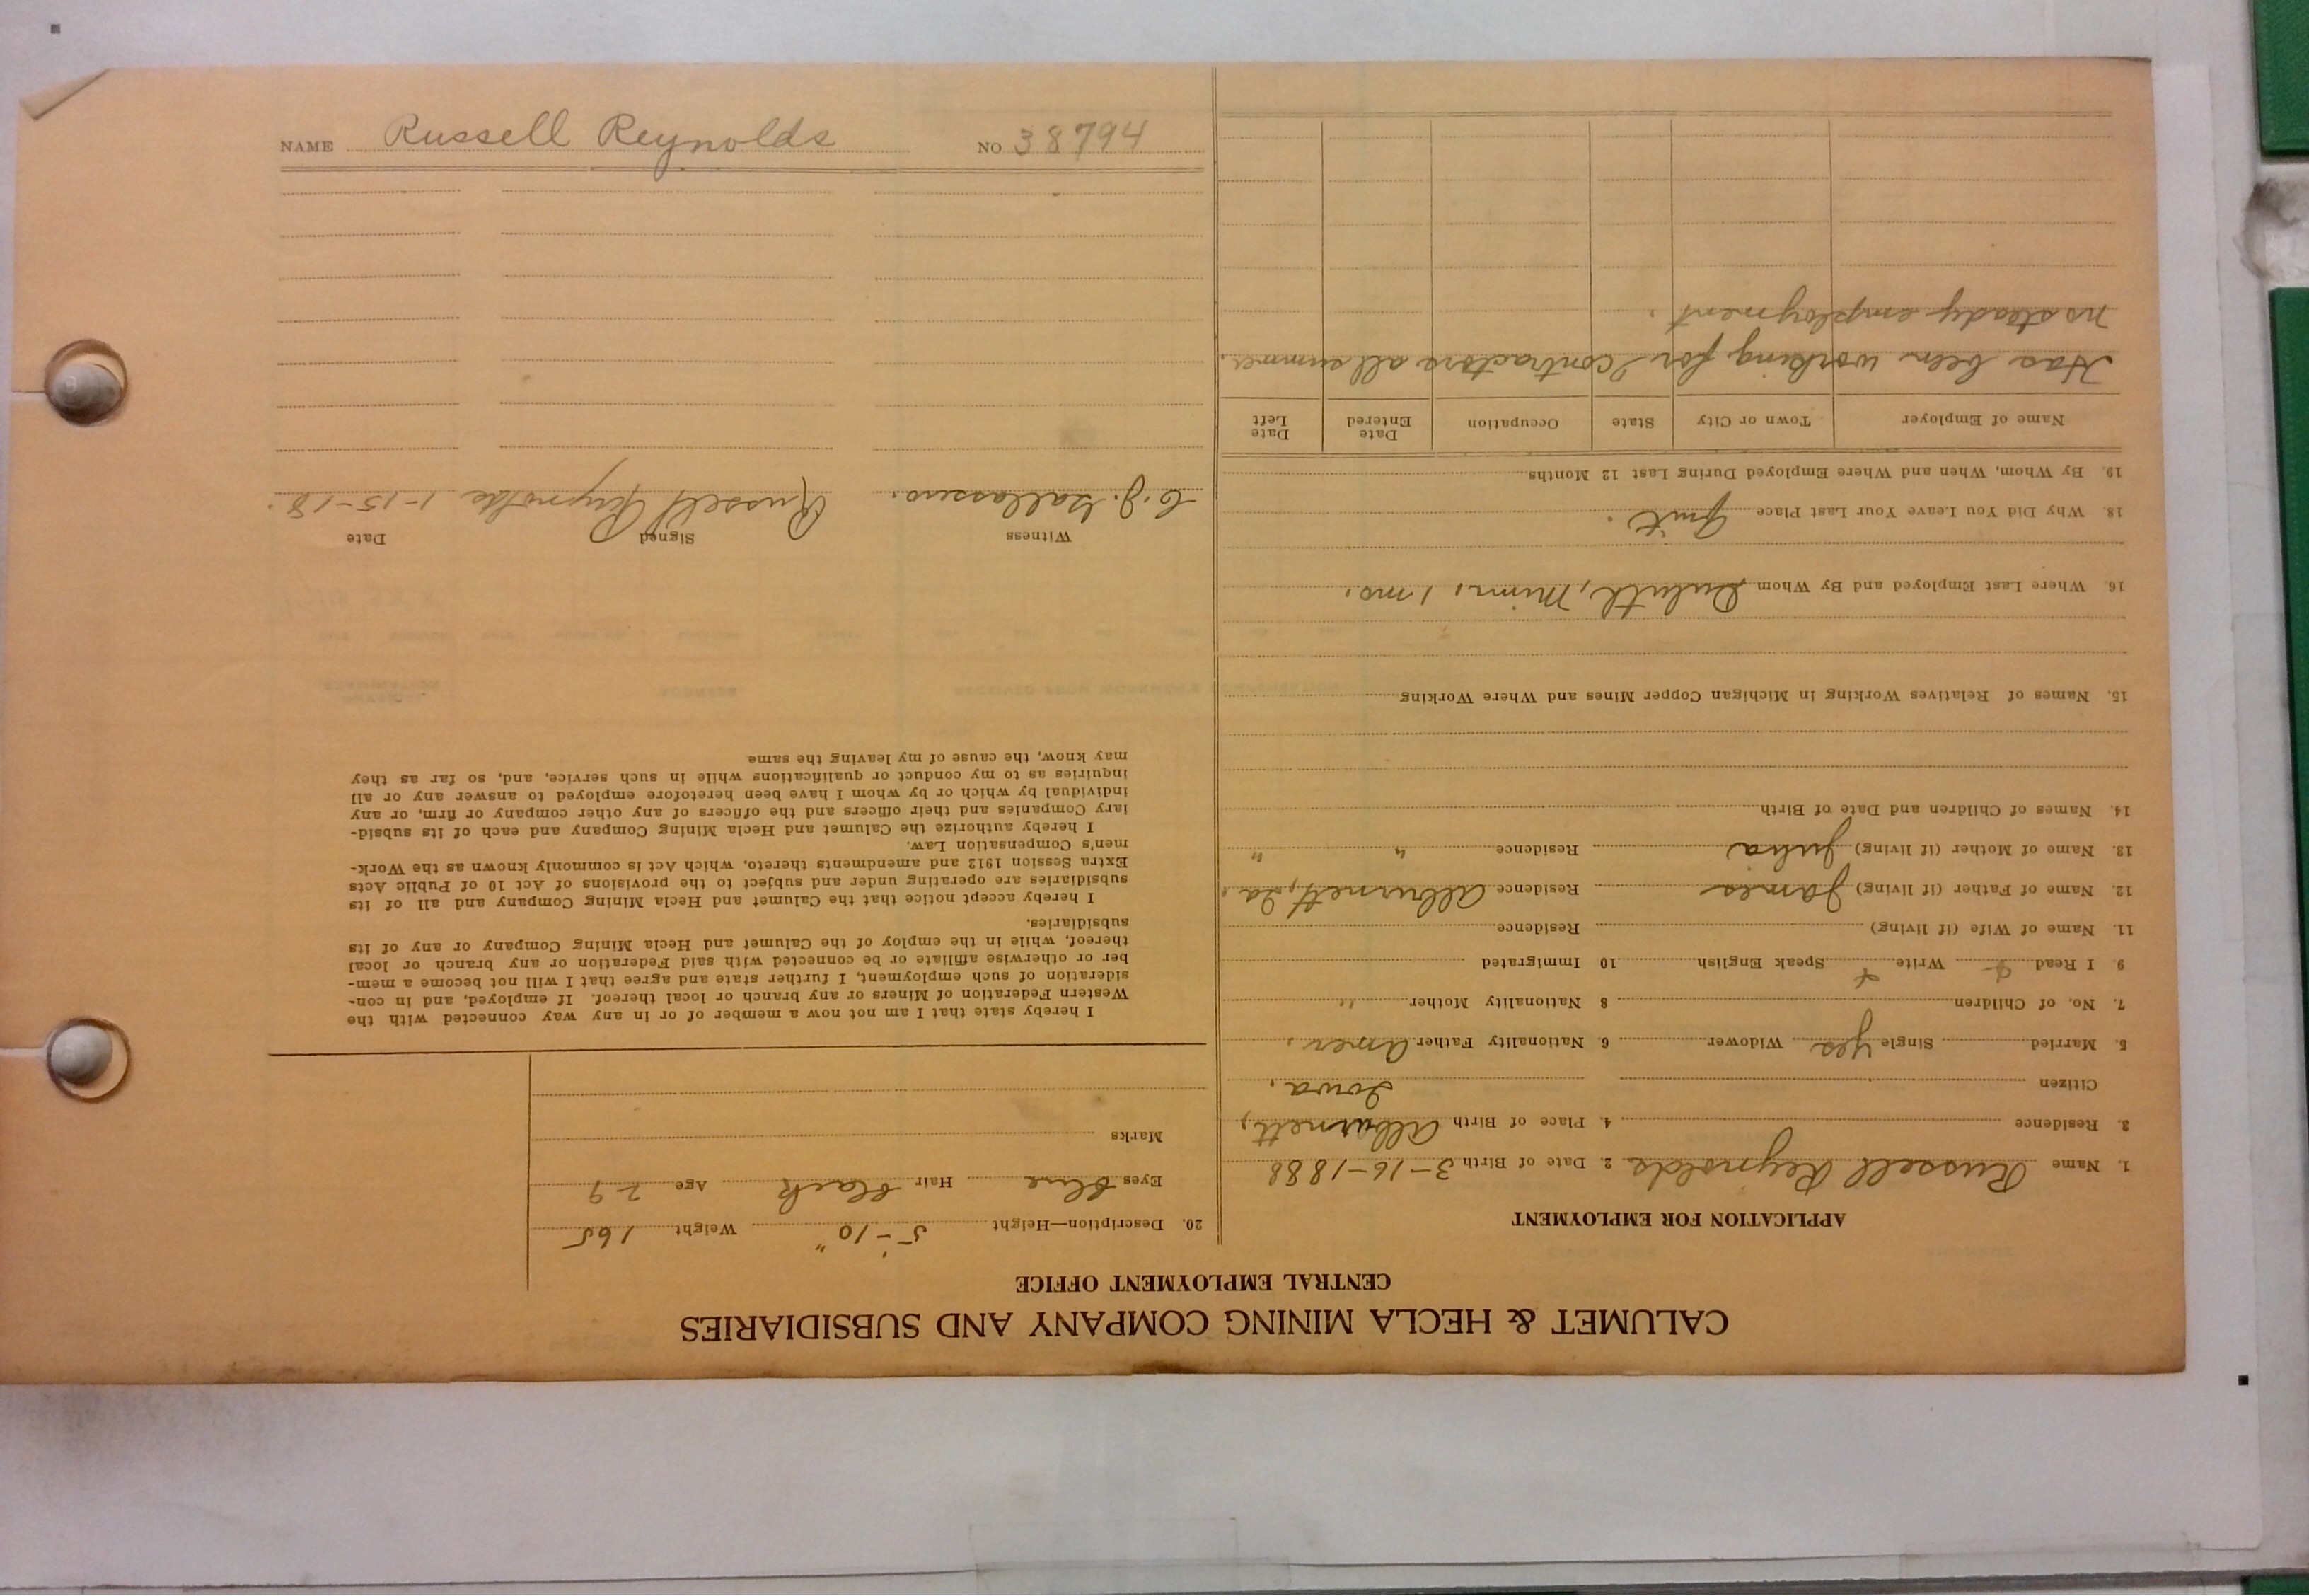 CALUMET & HECLA MINING COMPANY AND SUBSIDIARIES
CENTRAL EMPLOYMENT OFFICE
APPLICATION FOR EMPLOYMENT
1. Name Russell Reynolds 2. Date of Birth 3-16-1888
3. Residence 4. Place of Birth Alburnett,
Citizen Iowa.
5. Married Single yes Widower 6. Nationality Father Amer.
7. No. of Children 8 Nationality Mother "
9. I Read Write Speak English 10 Immigrated
11. Name of Wife (if living) Residence
12. Name of Father (if living) James Residence Alburnett, Ia.
13. Name of Mother (if living) Julia Residence " "
14. Names of Children and Date of Birth
15. Names of Relatives Working in Michigan Copper Mines and Where Working
16. Where Last Employed and By Whom Duluth, Minn, 1 mo.
18. Why Did You Leave Your Last Place Quit.
19. By Whom, When and Where Employed During Last 12 Months
Name of Employer Town or City State Occupation Date Entered Date Left
Has been working for contractors all summer.
no steady employment.
20. Description—Height 5'-10" Weight 165
Eyes blue Hair black Age 29
Marks
I hereby state that I am not now a member of or in any way connected with the
Western Federation of Miners or any branch or local thereof. If employed, and in con-
sideration of such employment, I further state and agree that I will not become a mem-
ber or otherwise affiliate or be connected with said Federation or any branch or local
thereof, while in the employ of the Calumet and Hecla Mining Company or any of its
subsidiaries.
I hereby accept notice that the Calumet and Hecla Mining Company and all of its
subsidiaries are operating under and subject to the provisions of Act 10 of Public Acts
Extra Session 1912 and amendments thereto, which Act is commonly known as the Work-
men's Compensation Law.
I hereby authorize the Calumet and Hecla Mining Company and each of its subsid-
iary Companies and their officers and the officers of any other company or firm, or any
individual by which or by whom I have been heretofore employed to answer any or all
inquiries as to my conduct or qualifications while in such service, and, so far as they
may know, the cause of my leaving the same
Witness Signed Date
C. J. Russell Reynolds 1-15-18.
NAME Russell Reynolds NO 38794